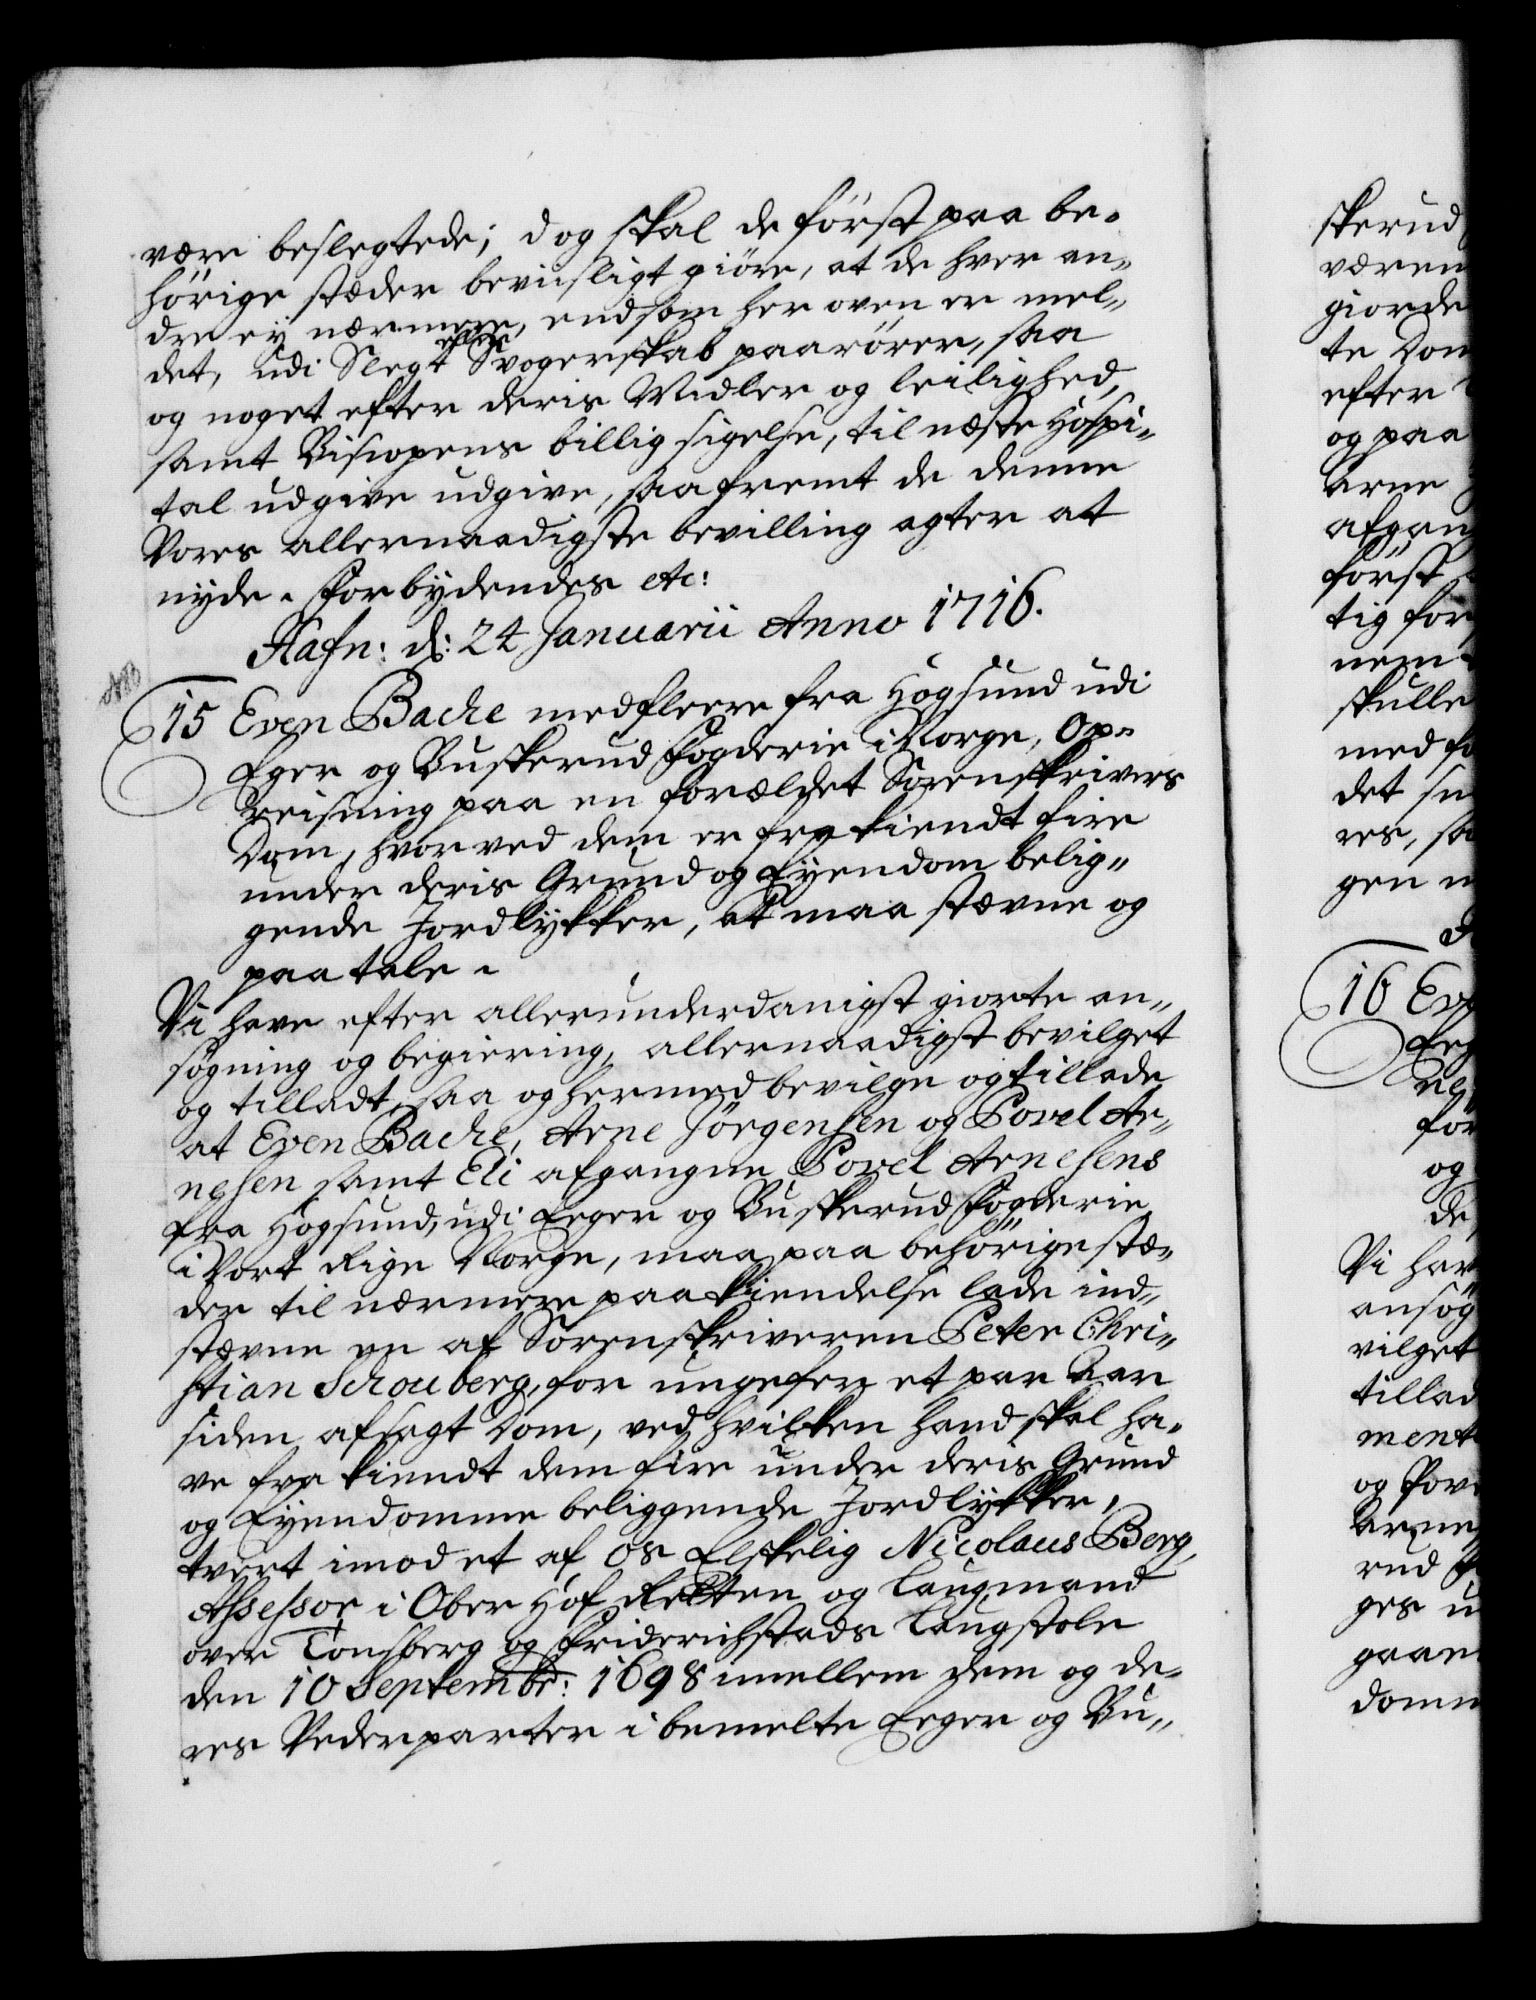 være beslegtede; dog skal de först paa be-
hörige stæder beviisligt giöre, at de hver an-
dre ey nærmere, end som her oven er mel-
det, udi Slegt eller Svogerskab paarörer, saa
og noget efter deris Midler og leilighed,
samt Biscopens billig sigelse, til næste Hospi-
tal udgive udgive, saafremt de denne
Vores allernaadigste bevilling agter at
nyde. Forbydendes etc:
Hafn: d: 24 Januarii Anno 1716.
15 Even Bache med fleere fra Högsund udi
Eger og Buskerud Fogderie i Norge, Op-
reisning paa en forældet Sorenskrivers
Dom, hvorved dem er fra kiendt fire
under deris Grund og Eyendom belig-
gende Jordlykker, at maa stævne og
paatale.
Vi have efter allerunderdanigst giorte an-
søgning og begiering, allernaadigst bevilget
og tilladt, saa og hermed bevilge og tillade
at Even Bache, Arne Jörgensen og Povel Ar-
nesen samt Eli afgangne Povel Arnesens
fra Högsund, udi Eeger og Buskerud Fogderie
i Vort Rige Norge, maa paa behörige stæ-
der til nærmere paakiendelse lade ind-
stævne en af Sorenskriveren Peter Chri-
stian Schouberg, for ungefer et par Aar
siden afsagt Dom, ved hvilken hand skal ha-
ve fra kiendt dem fire under deris Grund
og Eyendomme beliggende Jordlykker,
tvert imod et af os Elskelig Nicolaus Berg,
Assessor i Ober Hof Retten og Laugmand
over Tonsberg og Friderichstads Laugstole
den 10 Septembr: 1698 imellem dem og de-
res Vederparter i bemelte Eeger og Bu-
skerud
væren
giorde
te Dom
efter
og paa
Arne
afgan
först
tig for
nem
skulle
med fo
det sn
res, sa
gen
16 Ev
Eeg
for
og
de
Vi hav
ansög
vilget
tillad
ment
og Pov
Arne
rud
ges u
gaan
domm